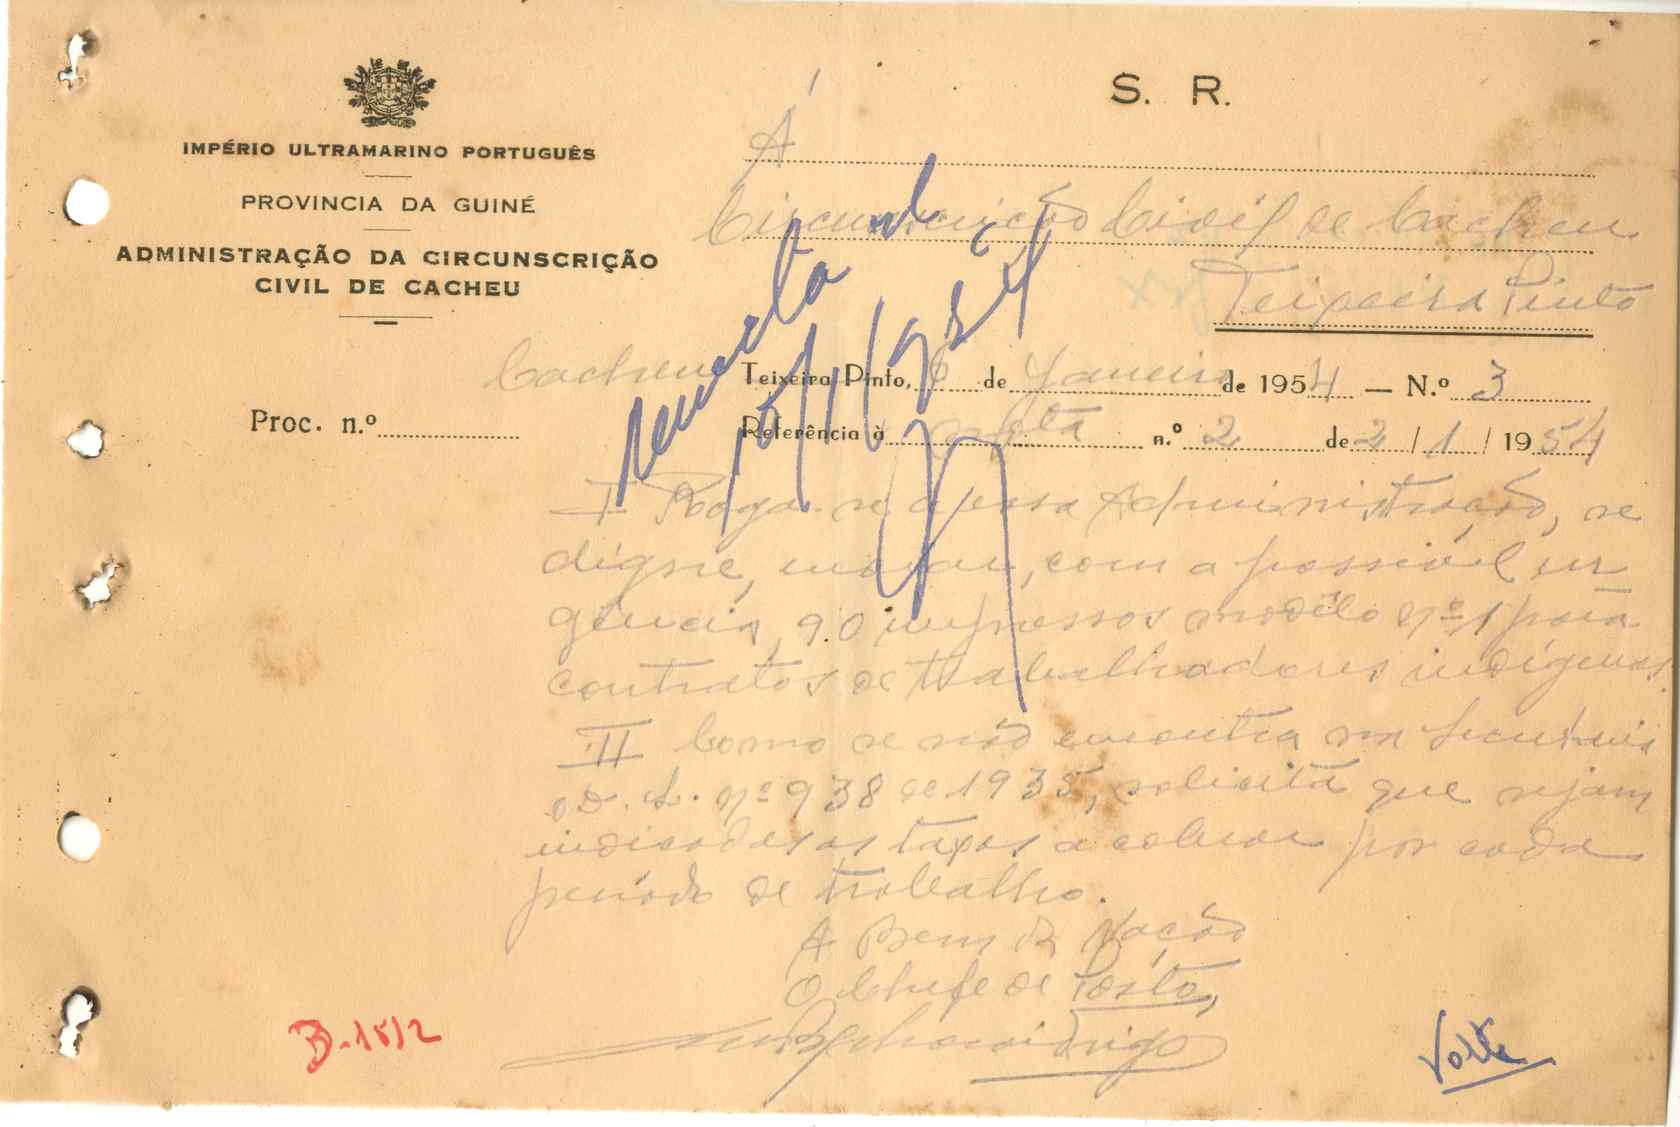 S. R.
IMPÉRIO ULTRAMARINO PORTUGUÊS
PROVINCIA DA GUINÉ
ADMINISTRAÇÃO DA CIRCUNSCRIÇÃO
CIVIL DE CACHEU
À
Circunscrição Civil de Cacheu
Teixeira Pinto
Cacheu Teixeira Pinto, 6 de Janeiro de 1954 — N.º 3
Proc. n.º
Referência à nota n.º 2 de 2/1/1954
I Roga-se a essa Administração, se
digne, enviar, com a possivél ur
gência, 90 impressos modêlo nº 1 para
contratos de trabalhadores indígenas.
II Como se não encontra na
o D. L. nº 938 de 1935, solicita que sejam
indicadas as taxas a cobrar por cada
periodo de trabalho.
A Bem da Nação
O Chefe de Posto,
B-15/2
Volte